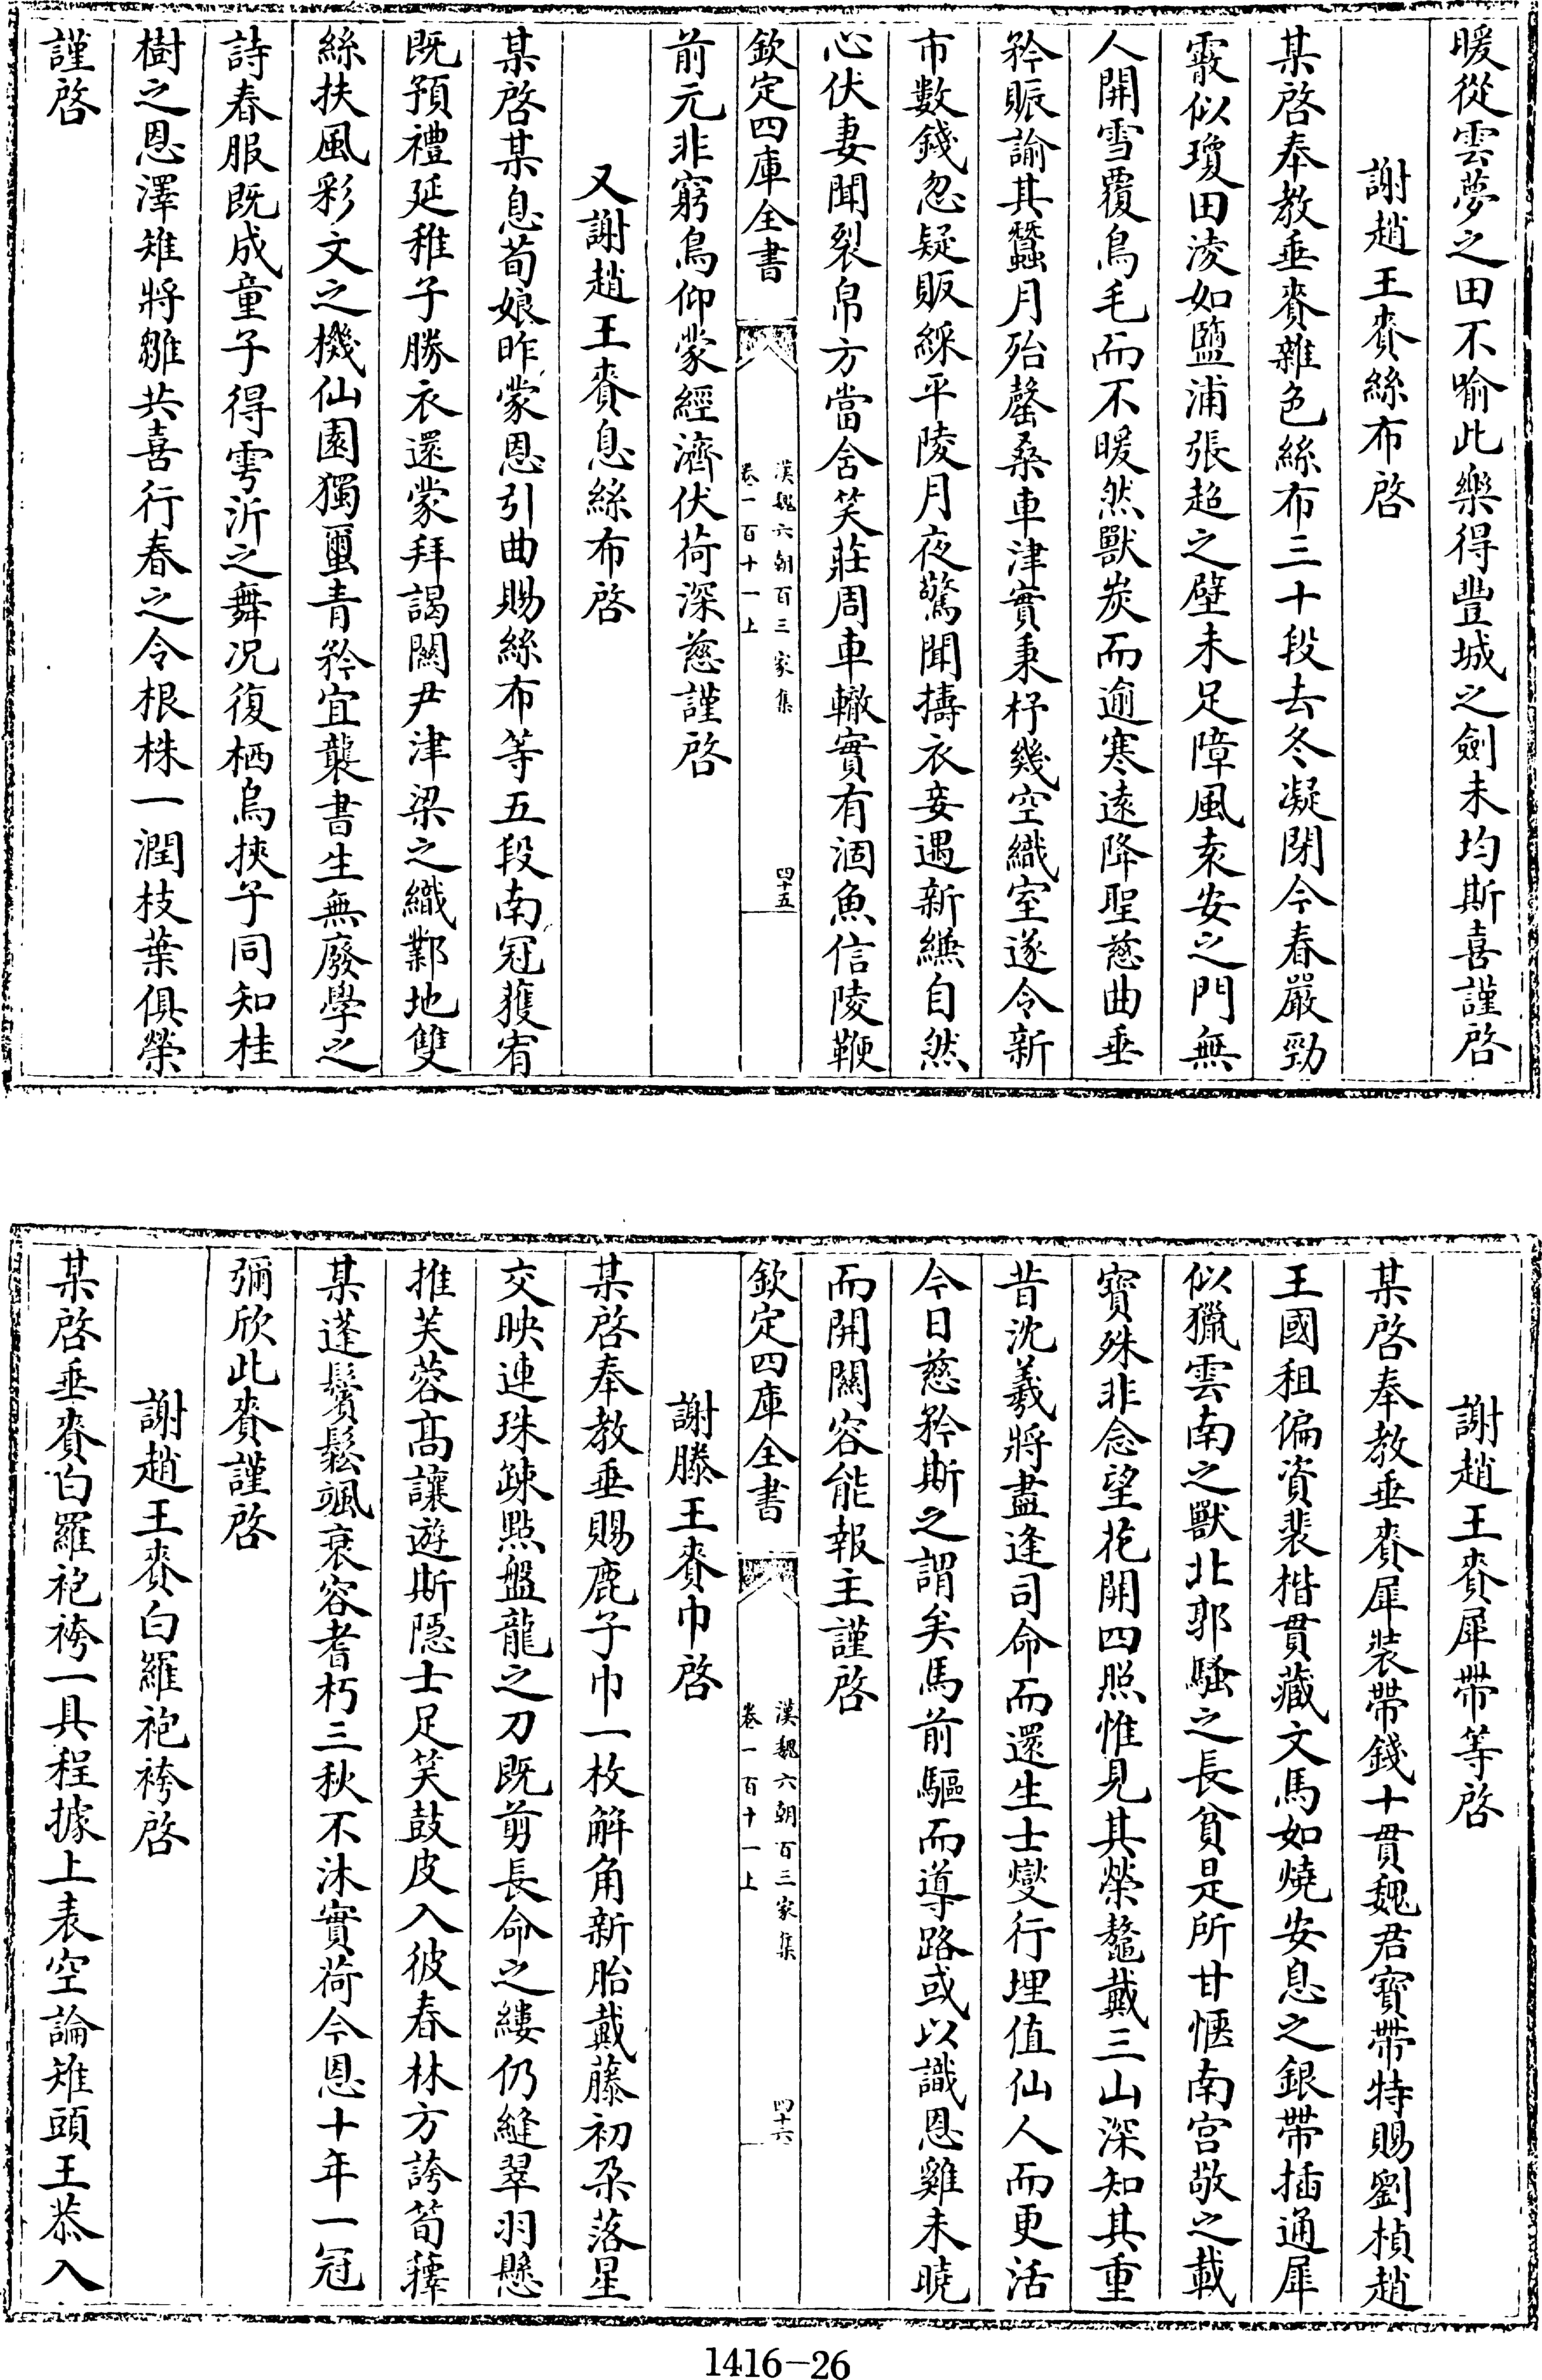 暖從雲夢之田不喻此樂得豐城之劍未均斯喜謹啓
謝趙王賚絲布啓
某啓奉教垂賚雜色絲布三十段去冬凝閉今春嚴勁
霰似瓊田淩如鹽浦張超之壁未足障風袁安之門無
人開雪覆鳥毛而不暖然獸炭而逾寒遠降聖慈曲垂
矜賑諭其蠶月殆罄桑車津實秉杼幾空織室遂令新
市數錢忽疑販綵平陵月夜驚聞擣衣妾遇新縑自然
心伏妻聞裂帛方當含笑莊周車轍實有涸魚信陵鞭
欽定四庫全書
漢魏六朝百三家集
卷一百十一上
四十五
前元非窮鳥仰蒙經濟伏荷深慈謹啓
又謝趙王賚息絲布啓
某啓某息荀娘昨蒙恩引曲賜絲布等五段南冠獲宥
既預禮延稚子勝衣還蒙拜謁關尹津梁之織鄴地雙
絲扶風彩文之機仙園獨蠒青衿宜襲書生無廢學之
詩春服既成童子得雩沂之舞况復栖烏挾子同知桂
樹之恩澤雉將雛共喜行春之令根株一潤枝葉俱榮
謹啓
謝趙王賚犀帶等啓
某啓奉教垂賚犀裝帶錢十貫魏君寳帶特賜劉楨趙
王國租偏資裴楷貫藏文馬如燒安息之銀帶插通犀
似獵雲南之獸北郭騷之長貧是所甘愜南宫敬之載
寳殊非念望花開四照惟見其榮鼇戴三山深知其重
昔沈羲將盡逢司命而還生士燮行埋值仙人而更活
今日慈矜斯之謂矣馬前驅而導路或以識恩雞未曉
而開關容能報主謹啓
欽定四庫全書
漢魏六朝百三家集
卷一百十一上
四十六
謝滕王賚巾啓
某啓奉教垂賜鹿子巾一枚解角新胎戴藤初朶落星
交映連珠疎點盤龍之刀既剪長命之縷仍縫翠羽懸
推芙蓉高讓遊斯隱士足笑鼓皮入彼春林方誇筍籜
某蓬鬢鬆颯衰容耆朽三秋不沐實荷今恩十年一冠
彌欣此賚謹啓
謝趙王賚白羅袍袴啓
某啓垂賚白羅袍袴一具程據上表空論雉頭王恭入
1416-26